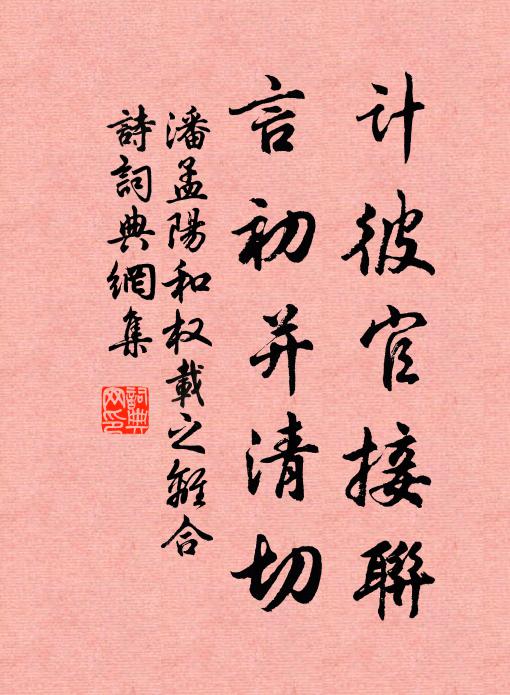 计彼官接聯
言初并清切
潘孟陽和权載之離合
詩詞典網集
詞典
网印